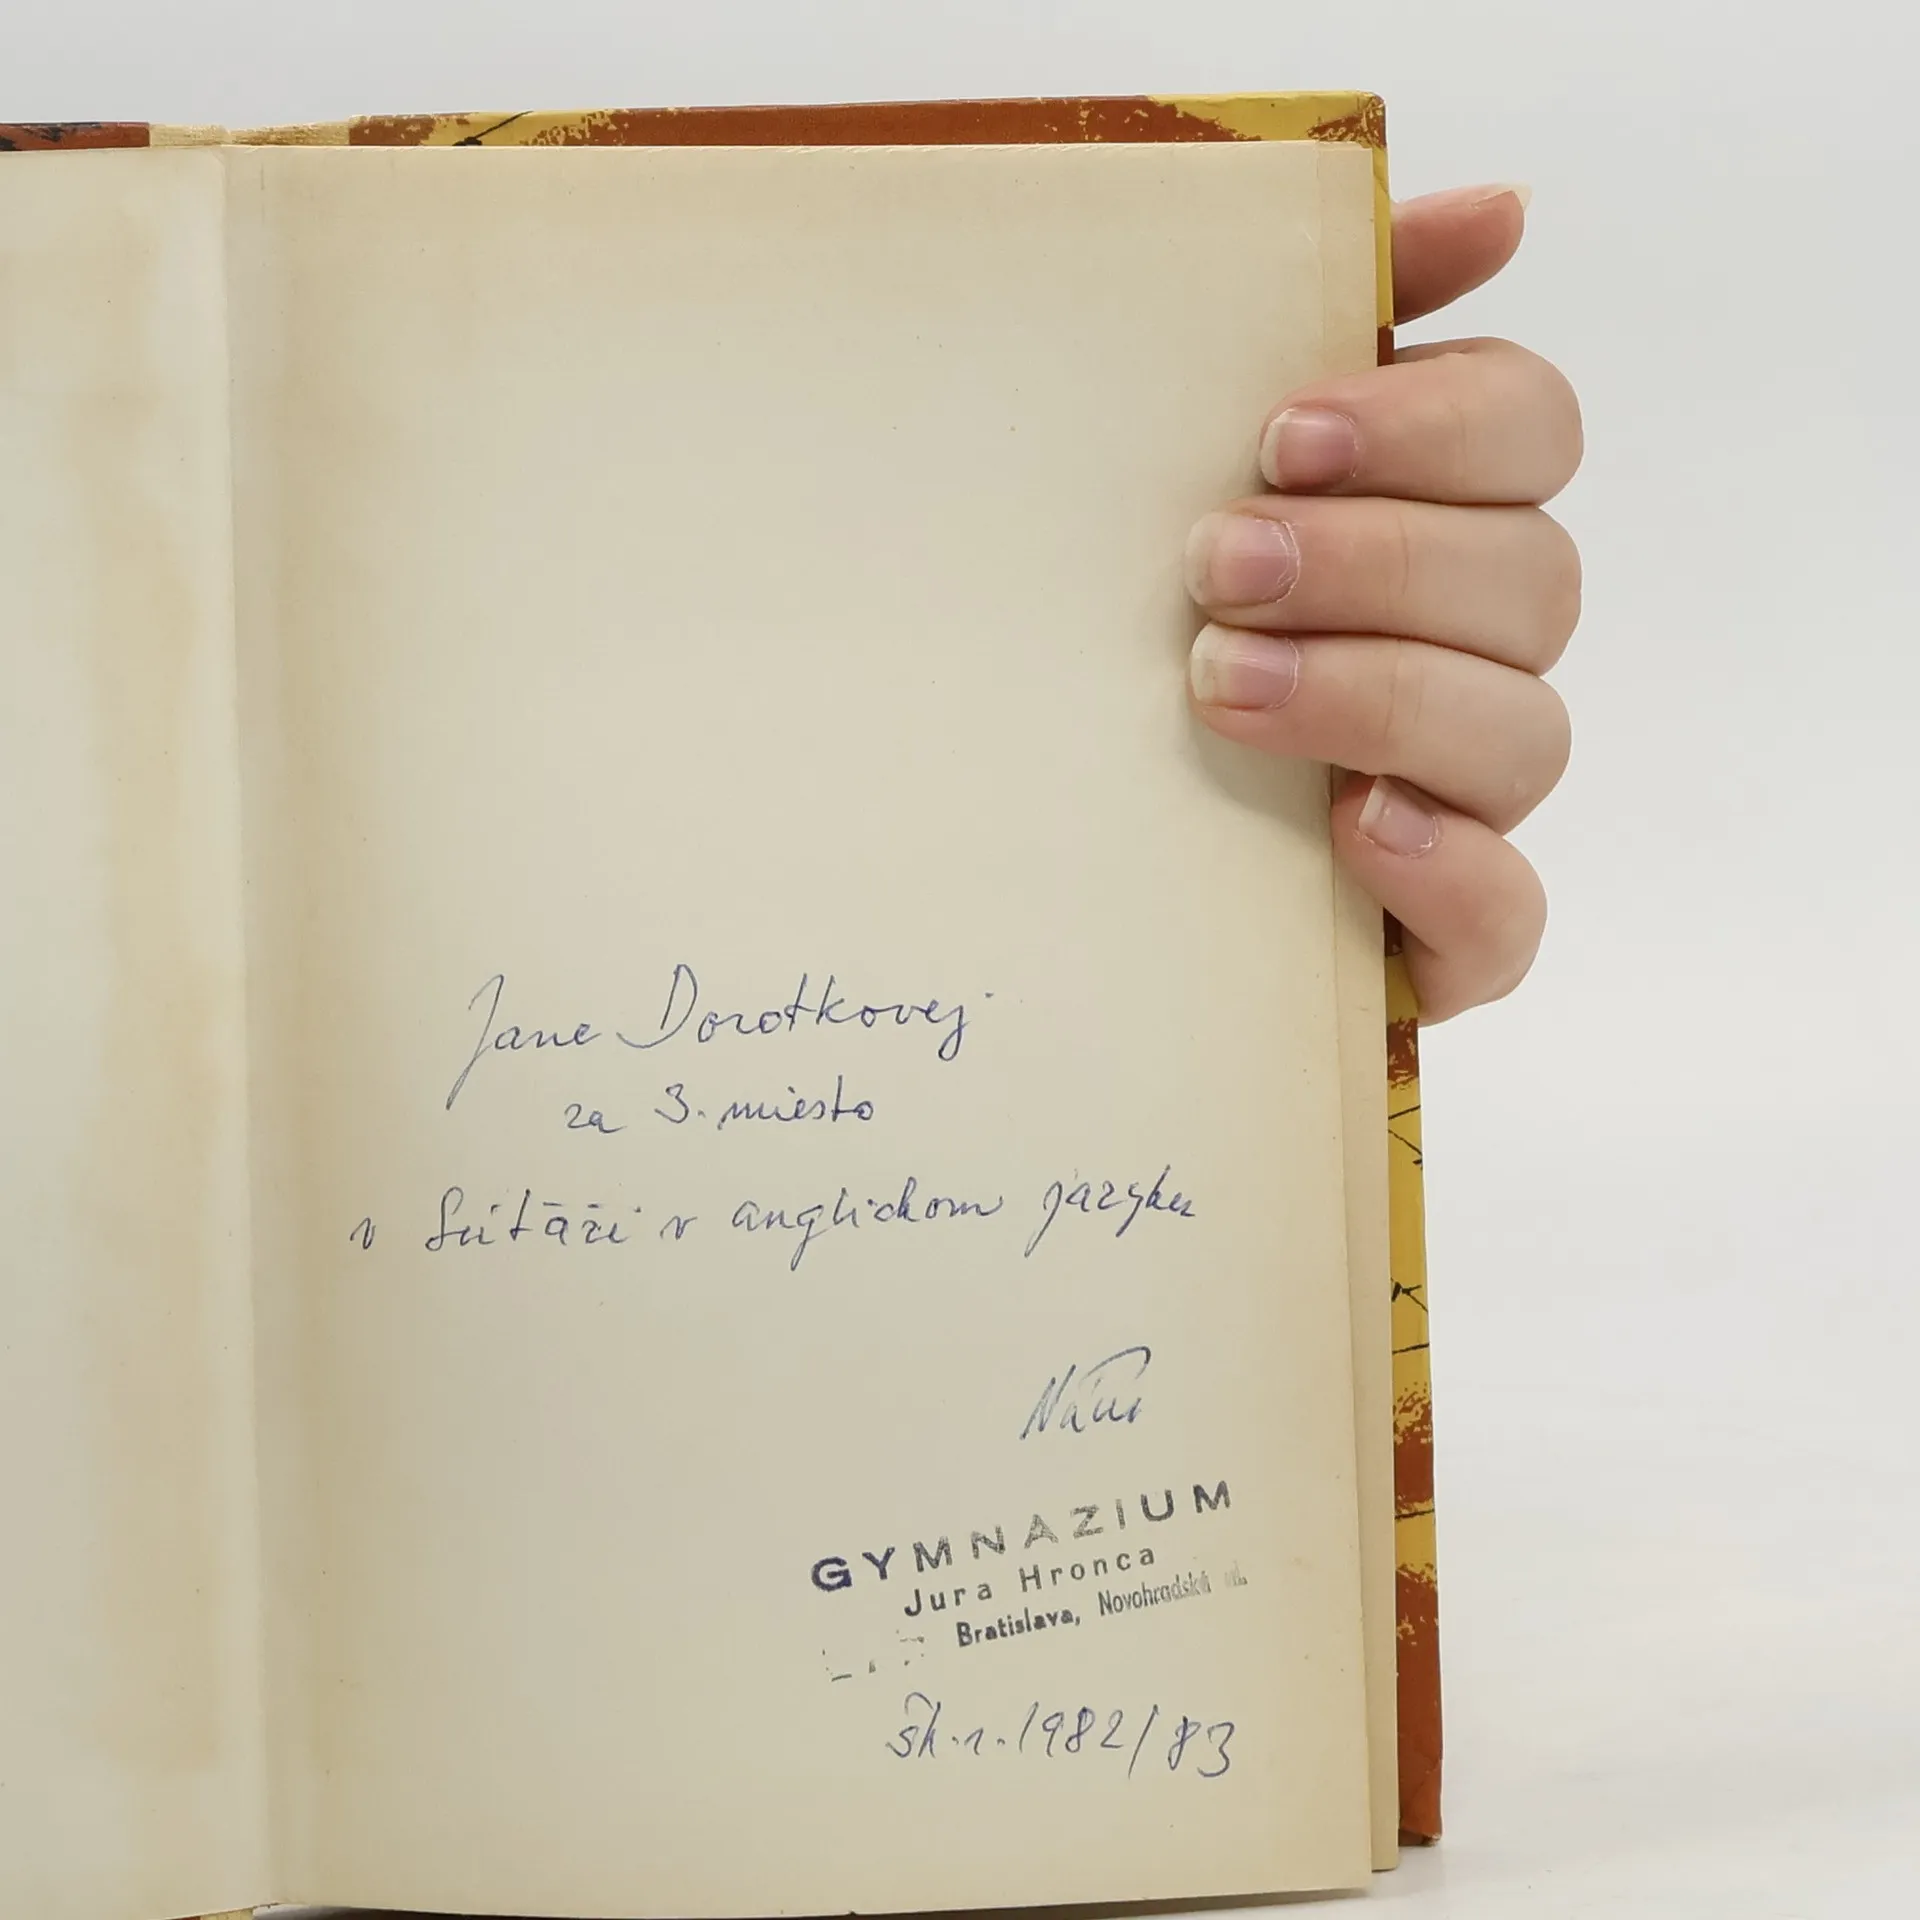 Jane Dorotkovej
za 3. miesto
v súťaži v anglickom jazyku
GYMNAZIUM
Jura Hronca
Bratislava, Novohradská ul.
Šk. r. 1982/83